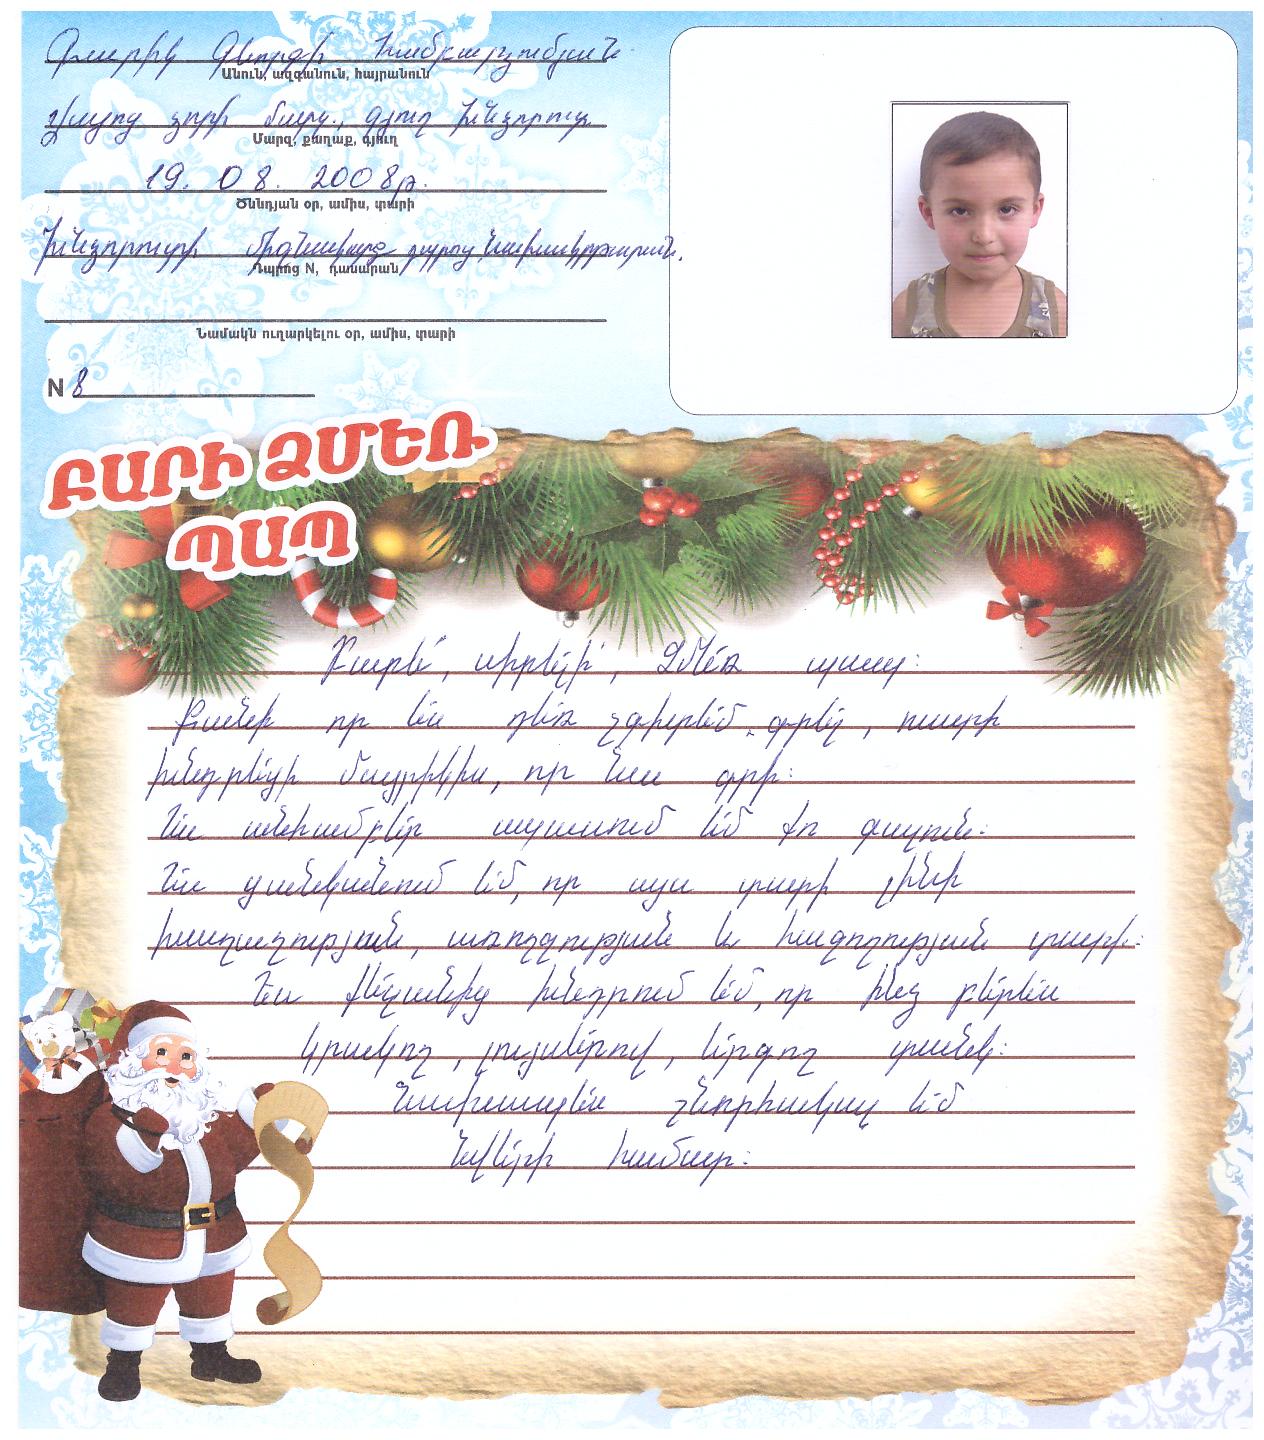 Գարիկ Գևորգի Համբարձումյան
Անուն, ազգանուն, հայրանուն
Վայոց ձորի մարզ., գյուղ Խնձորուտ
Մարզ, քաղաք, գյուղ
19. 08. 2008թ.
Ծննդյան օր, ամիս, տարի
Խնձորուտի միջնակարգ դպրոց, նախակրթարան.
Դպրոց N, դասարան
Նամակն ուղարկելու օր, ամիս, տարի
N 8
ԲԱՐԻ ՁՄԵՌ
ՊԱՊ
Բարև՛, սիրելի՛, Ձմեռ պապ:
Քանի որ ես դեռ չգիտեմ գրել, ուստի
խնդրեցի մայրիկիս, որ նա գրի:
Ես անհամբեր սպասում եմ քո գալուն:
Ես ցանկանում եմ, որ այս տարի լինի
խաղաղության, առողջության և հաջողության տարի:
Ես քեզանից խնդրում եմ, որ ինձ բերես
կրակող, լույսերով, երգող տանկ:
Նախապես շնորհակալ եմ
նվերի համար: